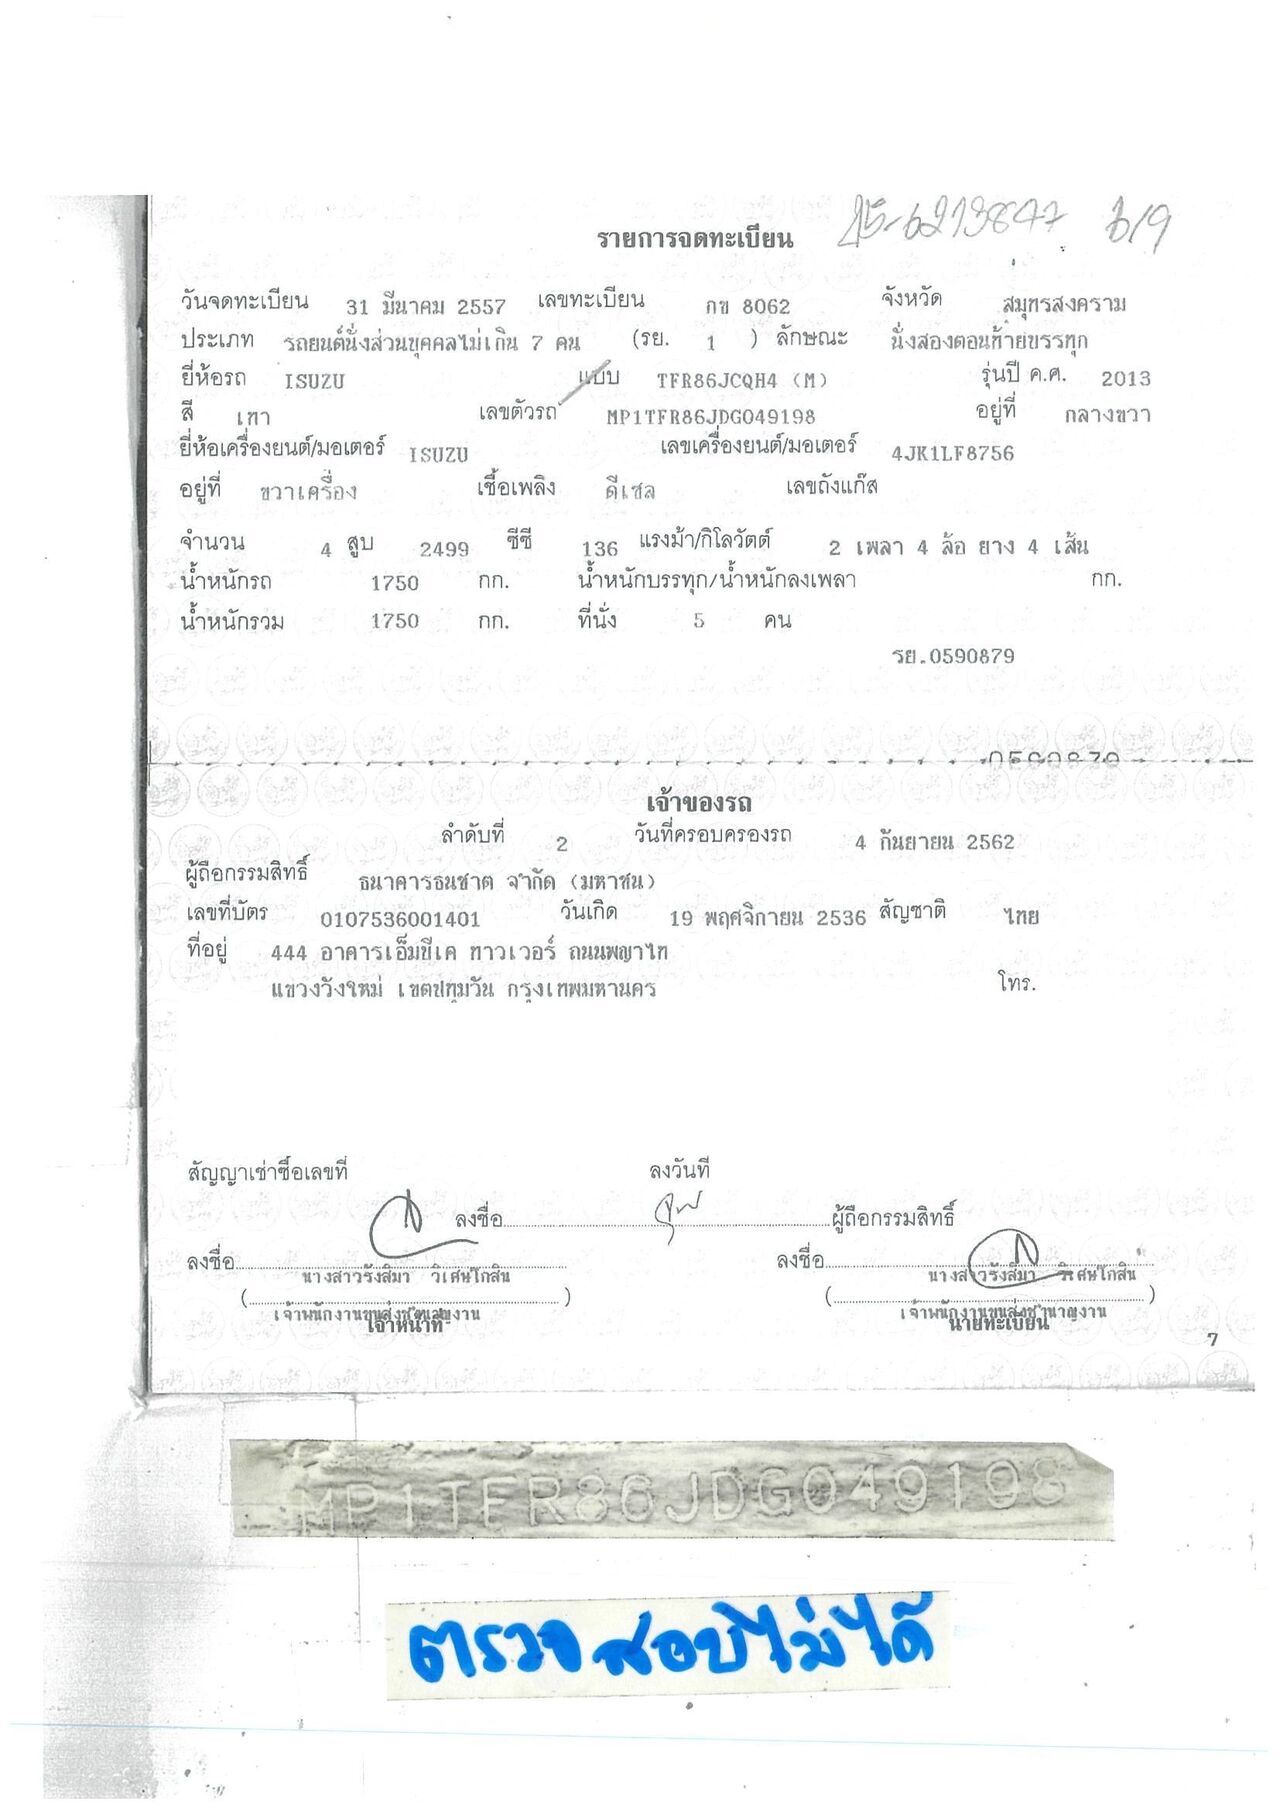 15-6213847 6/9
รายการจดทะเบียน
วันจดทะเบียน 31 มีนาคม 2557 เลขทะเบียน กข 8062 จังหวัด สมุทรสงคราม
ประเภท รถยนต์นั่งส่วนบุคคลไม่เกิน 7 คน (รย. 1 ) ลักษณะ นั่งสองตอนท้ายบรรทุก
ยี่ห้อรถ ISUZU แบบ TFR86JCQH4 (M) รุ่นปี ค.ศ. 2013
สี เทา เลขตัวรถ MP1TFR86JDG049198 อยู่ที่ กลางขวา
ยี่ห้อเครื่องยนต์/มอเตอร์ ISUZU เลขเครื่องยนต์/มอเตอร์ 4JK1LF8756
อยู่ที่ ขวาเครื่อง เชื้อเพลิง ดีเซล เลขถังแก๊ส
จำนวน 4 สูบ 2499 ซีซี 136 แรงม้า/กิโลวัตต์ 2 เพลา 4 ล้อ ยาง 4 เส้น
น้ำหนักรถ 1750 กก. น้ำหนักบรรทุก/น้ำหนักลงเพลา กก.
น้ำหนักรวม 1750 กก. ที่นั่ง 5 คน
รย.0590879
0590879
เจ้าของรถ
ลำดับที่ 2 วันที่ครอบครองรถ 4 กันยายน 2562
ผู้ถือกรรมสิทธิ์ ธนาคารธนชาต จำกัด (มหาชน)
เลขที่บัตร 0107536001401 วันเกิด 19 พฤศจิกายน 2536 สัญชาติ ไทย
ที่อยู่ 444 อาคารเอ็มบีเค ทาวเวอร์ ถนนพญาไท
แขวงวังใหม่ เขตปทุมวัน กรุงเทพมหานคร โทร.
สัญญาเช่าซื้อเลขที่ ลงวันที่
ลงชื่อ ผู้ถือกรรมสิทธิ์
ลงชื่อ ลงชื่อ
นางสาวรังสิมา วิเศษโกสิน นางสาวรังสิมา วิเศษโกสิน
( ) ( )
เจ้าพนักงานขนส่งชำนาญงาน เจ้าพนักงานขนส่งชำนาญงาน
เจ้าหน้าที่ นายทะเบียน
7
MP1TFR86JDG049198
ตรวจสอบไม่ได้